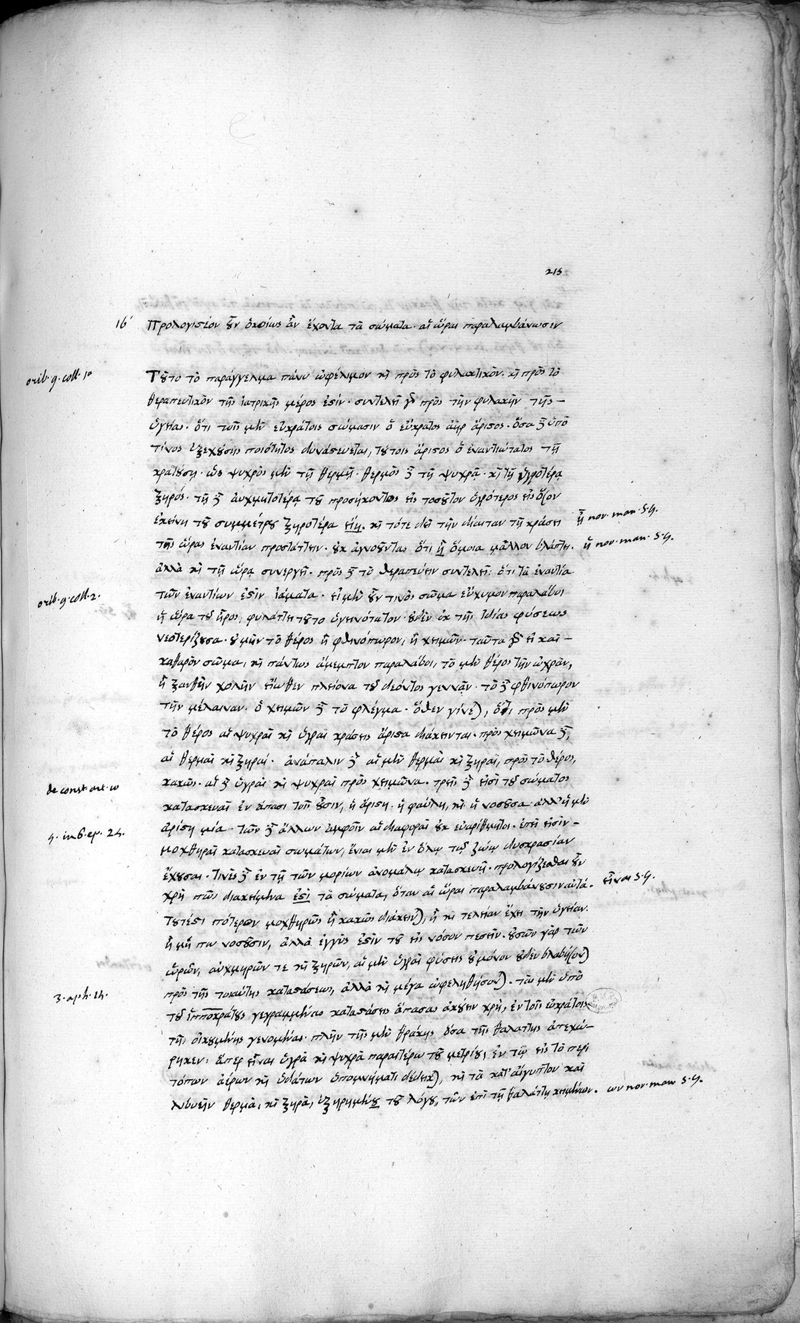 213
16 Προλογιστέον οὖν ὁκοίως ἂν ἔχοντα τὰ σώματα αἱ ὧραι παραλαμβάνωσιν
orib. 9. coll. 1º
Τοῦτο τὸ παράγγελμα πάνυ ὠφέλιμον καὶ πρὸς τὸ φυλακτικὸν. καὶ πρὸς τὸ
θεραπευτικὸν τῆς ἰατρικῆς μέρος ἐστίν. συντελεῖ γὰρ πρὸς τὴν φυλακὴν τῆς
ὑγείας. ὅτι τοῖς μὲν εὐκράτοις σώμασιν ὁ εὔκρατος ἀὴρ ἄριστος. ὅσα δὲ ὑπό
τινος ἐξεχούσης ποιότητος δυναστεύεται, τούτοις ἄριστος ὁ ἐναντιώτατος τῇ
κρατούσῃ. ὡς ψυχρὸς μὲν τῇ θερμῇ. θερμὸς δὲ τῇ ψυχρᾷ. καὶ τῇ ὑγροτέρᾳ
ξηρός. τῇ δὲ αὐχμηροτέρᾳ τοῦ προσήκοντος εἰς τοσοῦτον ὑγρότερος εἰς ὅσον
ἐκείνη τοῦ συμμέτρου ξηροτέρα εἴη. καὶ τότε δεῖ τὴν δίαιταν τῇ κράσει
ᾖ nor. man. s. g.
τῆς ὥρας ἐναντίαν προστάττειν. οὐκ ἀγνοοῦντας ὅτι ἡ ὅμοια μᾶλλον βλάπτει.
ἢ nor. man. s. g.
ἀλλὰ καὶ τῇ ὥρᾳ συνεργεῖ. πρὸς δὲ τὸ θεραπεύειν συντελεῖ. ὅτι τὰ ἐναντία
orib. 9. coll. 2.
τῶν ἐναντίων ἐστὶν ἰάματα. εἰ μὲν οὖν τινὸς σῶμα εὔχυμον παραλάβοι
ἡ ὥρα τοῦ ἦρος, φυλάττει τοῦτο ὑγιεινότατον. οὐδὲν ἐκ τῆς ἰδίας φύσεως
νεοτερίζουσα. οὐ μὴν τὸ θέρος ἢ φθινόπωρον, ἢ χειμών. ταῦτα γὰρ εἰ καὶ
καθαρὸν σῶμα, καὶ πάντως ἄμεμπτον παραλάβοι, τὸ μὲν θέρος τὴν ὠχρὰν,
ἢ ξανθὴν χολὴν εἴωθεν πλείονα τοῦ δέοντος γεννᾶν. τὸ δὲ φθινόπωρον
τὴν μέλαιναν. ὁ χειμὼν δὲ τὸ φλέγμα. ὅθεν γίνεται, ὅτι πρὸς μὲν
τὸ θέρος αἱ ψυχραὶ καὶ ὑγραὶ κράσεις ἄριστα διάκεινται. πρὸς χειμῶνα δὲ
αἱ θερμαὶ καὶ ξηραί. ἀνάπαλιν δὲ αἱ μὲν θερμαὶ καὶ ξηραὶ, πρὸς τὸ θέρος,
de const. art.
κακῶς. αἱ δὲ ὑγραὶ καὶ ψυχραὶ πρὸς χειμῶνα. τρεῖς δὲ εἰσὶ τοῦ σώματος
κατασκευαὶ ἐν ἅπασι τοῖς οὖσιν, ἡ ἀρίστη, ἡ φαύλη, καὶ ἡ νοσοῦσα. ἀλλ' ἡ μὲν
4. in 6. ep. 24.
ἀρίστη μία. τῶν δὲ ἄλλων ἀμφοῖν αἱ διαφοραὶ οὐκ εὐαρίθμητοι. ἐπεὶ εἰσὶν
μοχθηραὶ κατασκευαὶ σωμάτων, ἔνιαι μὲν ἐν ὅλῳ τῷ ζώῳ δυσκρασίαν
ἔχουσαι. τινὲς δὲ ἐν τῇ τῶν μορίων ἀνομάλῳ κατασκευῇ. προλογίζεσθαι οὖν
χρὴ πῶς διακείμενα ἐστὶ τὰ σώματα, ὅταν αἱ ὧραι παραλαμβάνουσιν αὐτά.
εἶναι s. g.
τουτέστι πότερον μοχθηρῶς ἢ κακῶς διάκειται, ἢ καὶ τελείαν ἔχει τὴν ὑγείαν.
ἢ μή πω νοσοῦσιν, ἀλλὰ ἐγγύς ἐστιν τοῦ εἰς νόσον πεσεῖν. οὕτω γὰρ τῶν
ὡρῶν, αὐχμηρῶν τε καὶ ξηρῶν, αἱ μὲν ὑγραὶ φύσεις οὐ μόνον οὐδὲν βλαβήσονται
πρὸς τῆς τοιαύτης καταστάσεως, ἀλλὰ καὶ μέγα ὠφεληθήσονται. τὰς μὲν ὑπὸ
3. aph. 14.
τοῦ ἱπποκράτους γεγραμμένας καταστάσεις ἁπάσας ἀκούειν χρὴ, ἐν τοῖς εὐκράτοις
τῆς οἰκουμένης γενομένας. πλὴν τῆς μὲν θρᾴκης ὅσα τῆς θαλάττης ἀπεχώ-
ρηκεν. ἅπερ εἶναι ὑγρὰ καὶ ψυχρὰ παραιτέρω τοῦ μετρίου, ἐν τῷ εἰς τὸ περὶ
τόπων ἀέρων καὶ ὑδάτων ὑπομνήματι δέδεικται, καὶ τὰ κατ' αἴγυπτον καὶ
λιβύην θερμὰ, καὶ ξηρὰ, ἐξῃρημένου τοῦ λόγου, τῶν ἐπὶ τῇ θαλάττῃ κειμένων.
ων nor. man. s. g.